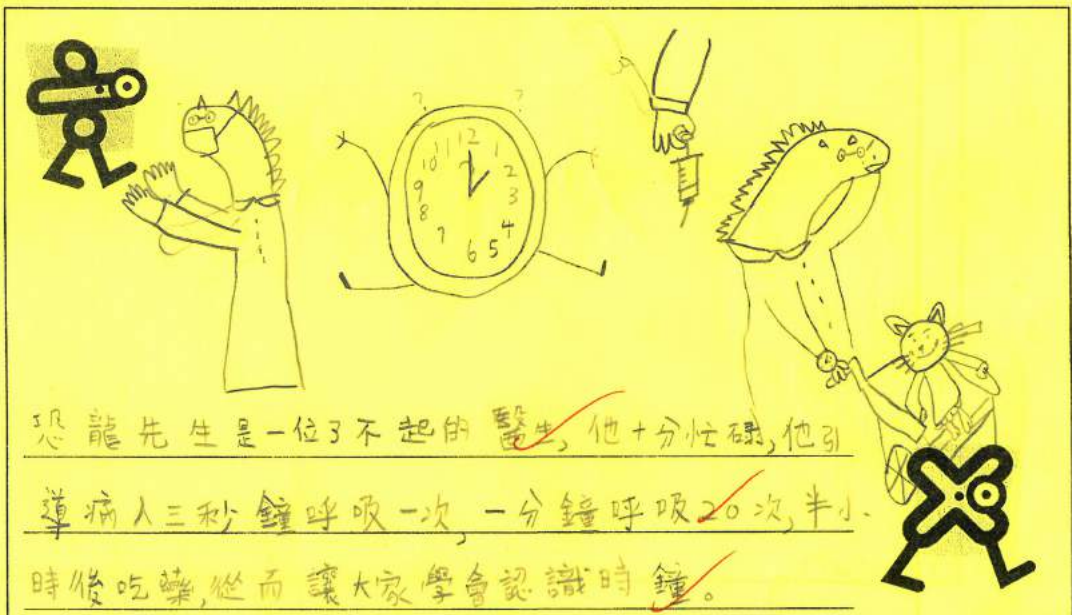 ? ?
12
11 1
10 2
9 3
8 4
7 5
6
恐龍先生是一位了不起的醫生,他十分忙碌,他引
導病人三秒鐘呼吸一次,一分鐘呼吸20次,半小
時後吃藥,從而讓大家學會認識時鐘。